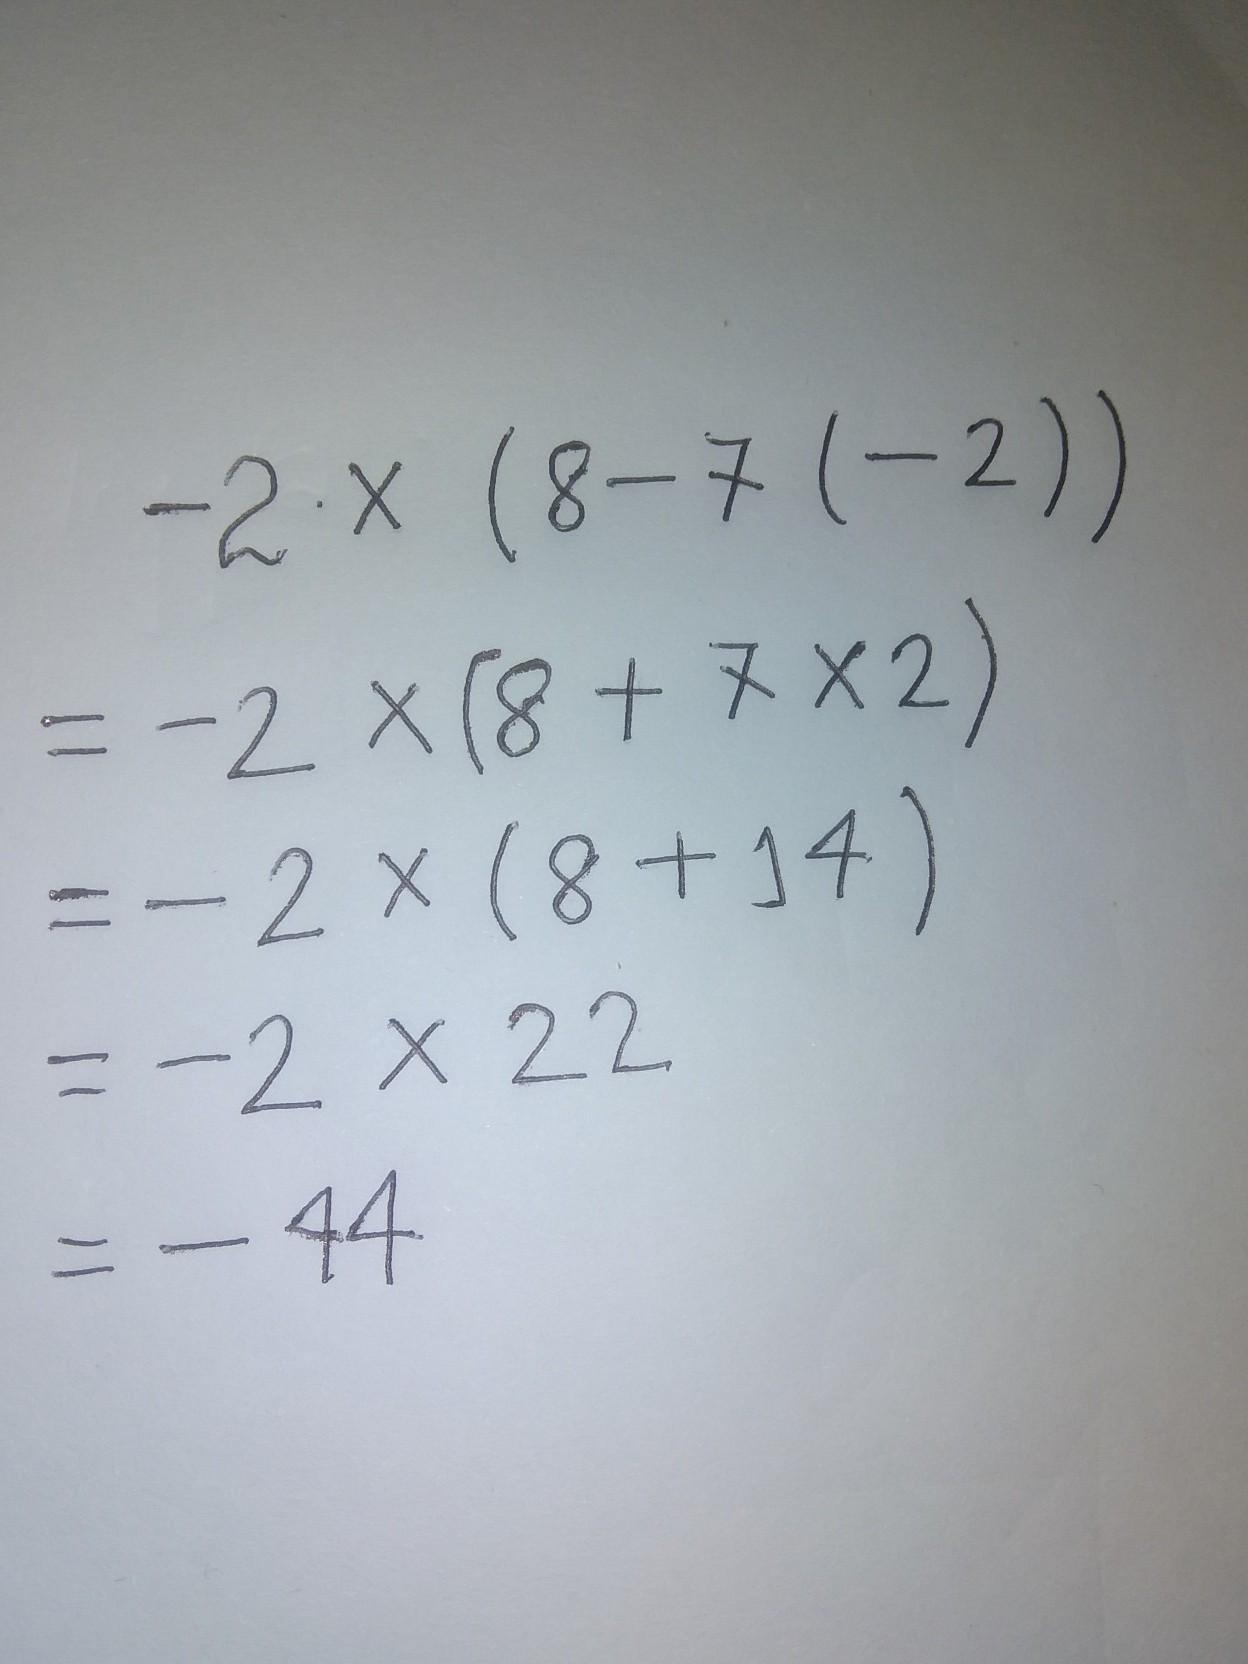 -2 · × (8-7(-2))
= -2 × (8 + 7 × 2)
= -2 × (8 + 14)
= -2 × 22
= - 44